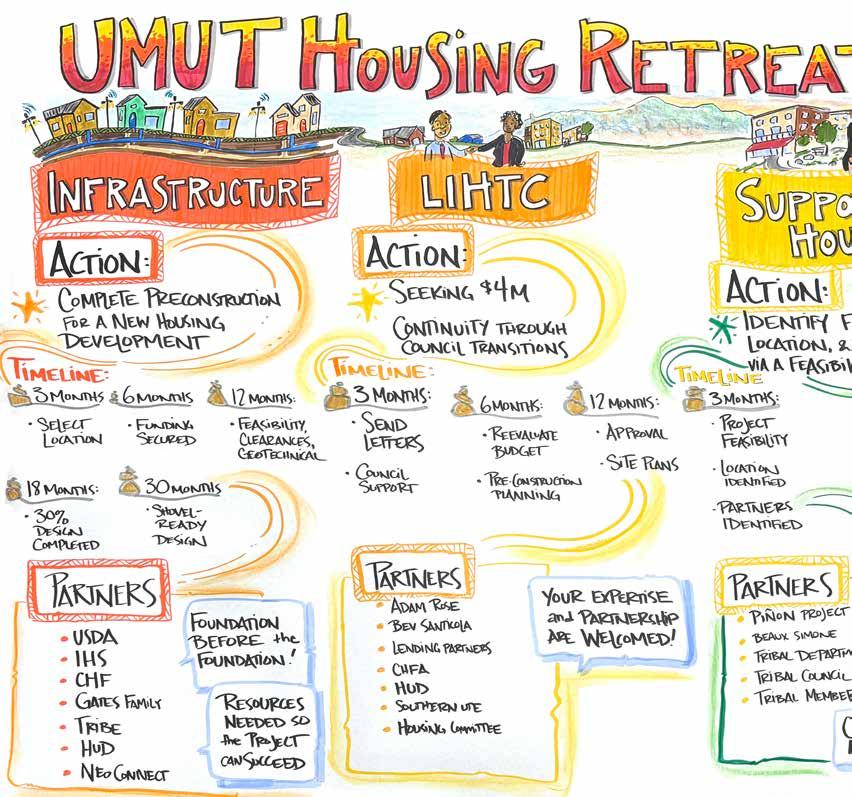 UMUT HOUSING RETREAT
INFRASTRUCTURE
ACTION:
COMPLETE PRECONSTRUCTION
FOR A NEW HOUSING
DEVELOPMENT
TIMELINE:
3 MONTHS
• SELECT
LOCATION
6 MONTHS
• FUNDING
SECURED
12 MONTHS:
• FEASIBILITY,
CLEARANCES,
GEOTECHNICAL
18 MONTHS:
• 30%
DESIGN
COMPLETED
30 MONTHS
• SHOVEL-
READY
DESIGN
PARTNERS
• USDA
• IHS
• CHF
• GATES FAMILY
• TRIBE
• HUD
• NEO CONNECT
FOUNDATION
BEFORE the
FOUNDATION!
RESOURCES
NEEDED SO
the PROJECT
CAN SUCCEED
LIHTC
ACTION:
SEEKING $4M
CONTINUITY THROUGH
COUNCIL TRANSITIONS
TIMELINE:
3 MONTHS:
• SEND
LETTERS
• COUNCIL
SUPPORT
6 MONTHS:
• REEVALUATE
BUDGET
• PRE-CONSTRUCTION
PLANNING
12 MONTHS:
• APPROVAL
• SITE PLANS
PARTNERS
• ADAM ROSE
• BEV SANTICOLA
• LENDING PARTNERS
• CHFA
• HUD
• SOUTHERN UTE
• HOUSING COMMITTEE
YOUR EXPERTISE
and PARTNERSHIP
ARE WELCOMED!
SUPPO
HOU
ACTION:
IDENTIFY F
LOCATION, &
VIA A FEASIBIL
TIMELINE
3 MONTHS:
• PROJECT
FEASIBILITY
• LOCATION
IDENTIFIED
• PARTNERS
IDENTIFIED
PARTNERS
• PIÑON PROJECT
• BEAUX SIMONE
• TRIBAL DEPARTM
• TRIBAL COUNCIL
• TRIBAL MEMBER